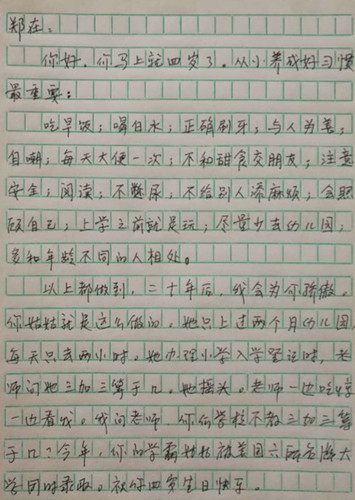 郑在:
你好,你马上就四岁了。从小养成好习惯
最重要:
吃早饭;喝白水;正确刷牙;与人为善;
自嘲;每天大便一次;不和甜食交朋友;注意
安全;阅读;不憋尿;不给别人添麻烦;会照
顾自己;上学之前就是玩;尽量少去幼儿园;
多和年龄不同的人相处。
以上都做到,二十年后,我会为你骄傲。
你姑姑就是这么做的。她只上过两个月的幼儿园,
每天只去两小时。她办理小学入学登记时,老
师问她三加三等于几。她摇头。老师一边吃惊
一边看我。我问老师,你们学校不教三加三等
于几?今年,你的学霸姑姑被美国六所名牌大
学同时录取。祝你四岁生日快乐。